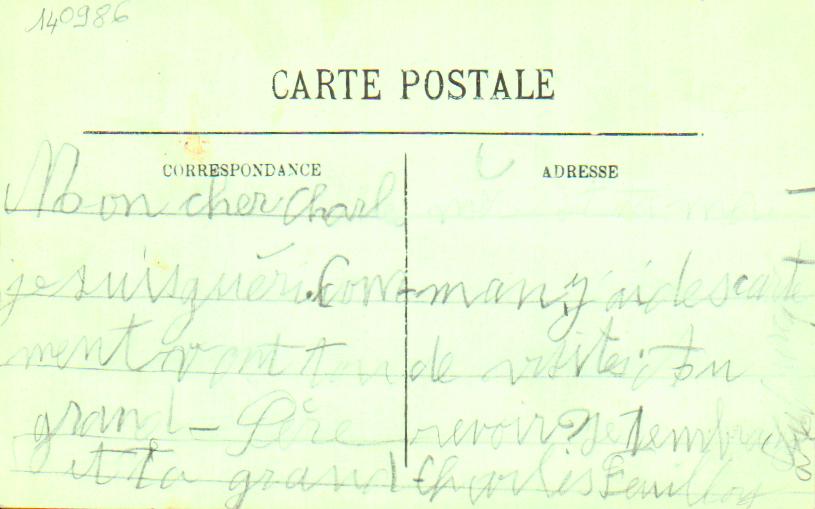 140986
CARTE POSTALE
CORRESPONDANCE
Mon cher Charl
je suis guéri. Com-
ment vont ton
grand-Père
et ta grand
ADRESSE
man, j'ai des carte
de visites. Au
revoir Je t'embrasse
Charles